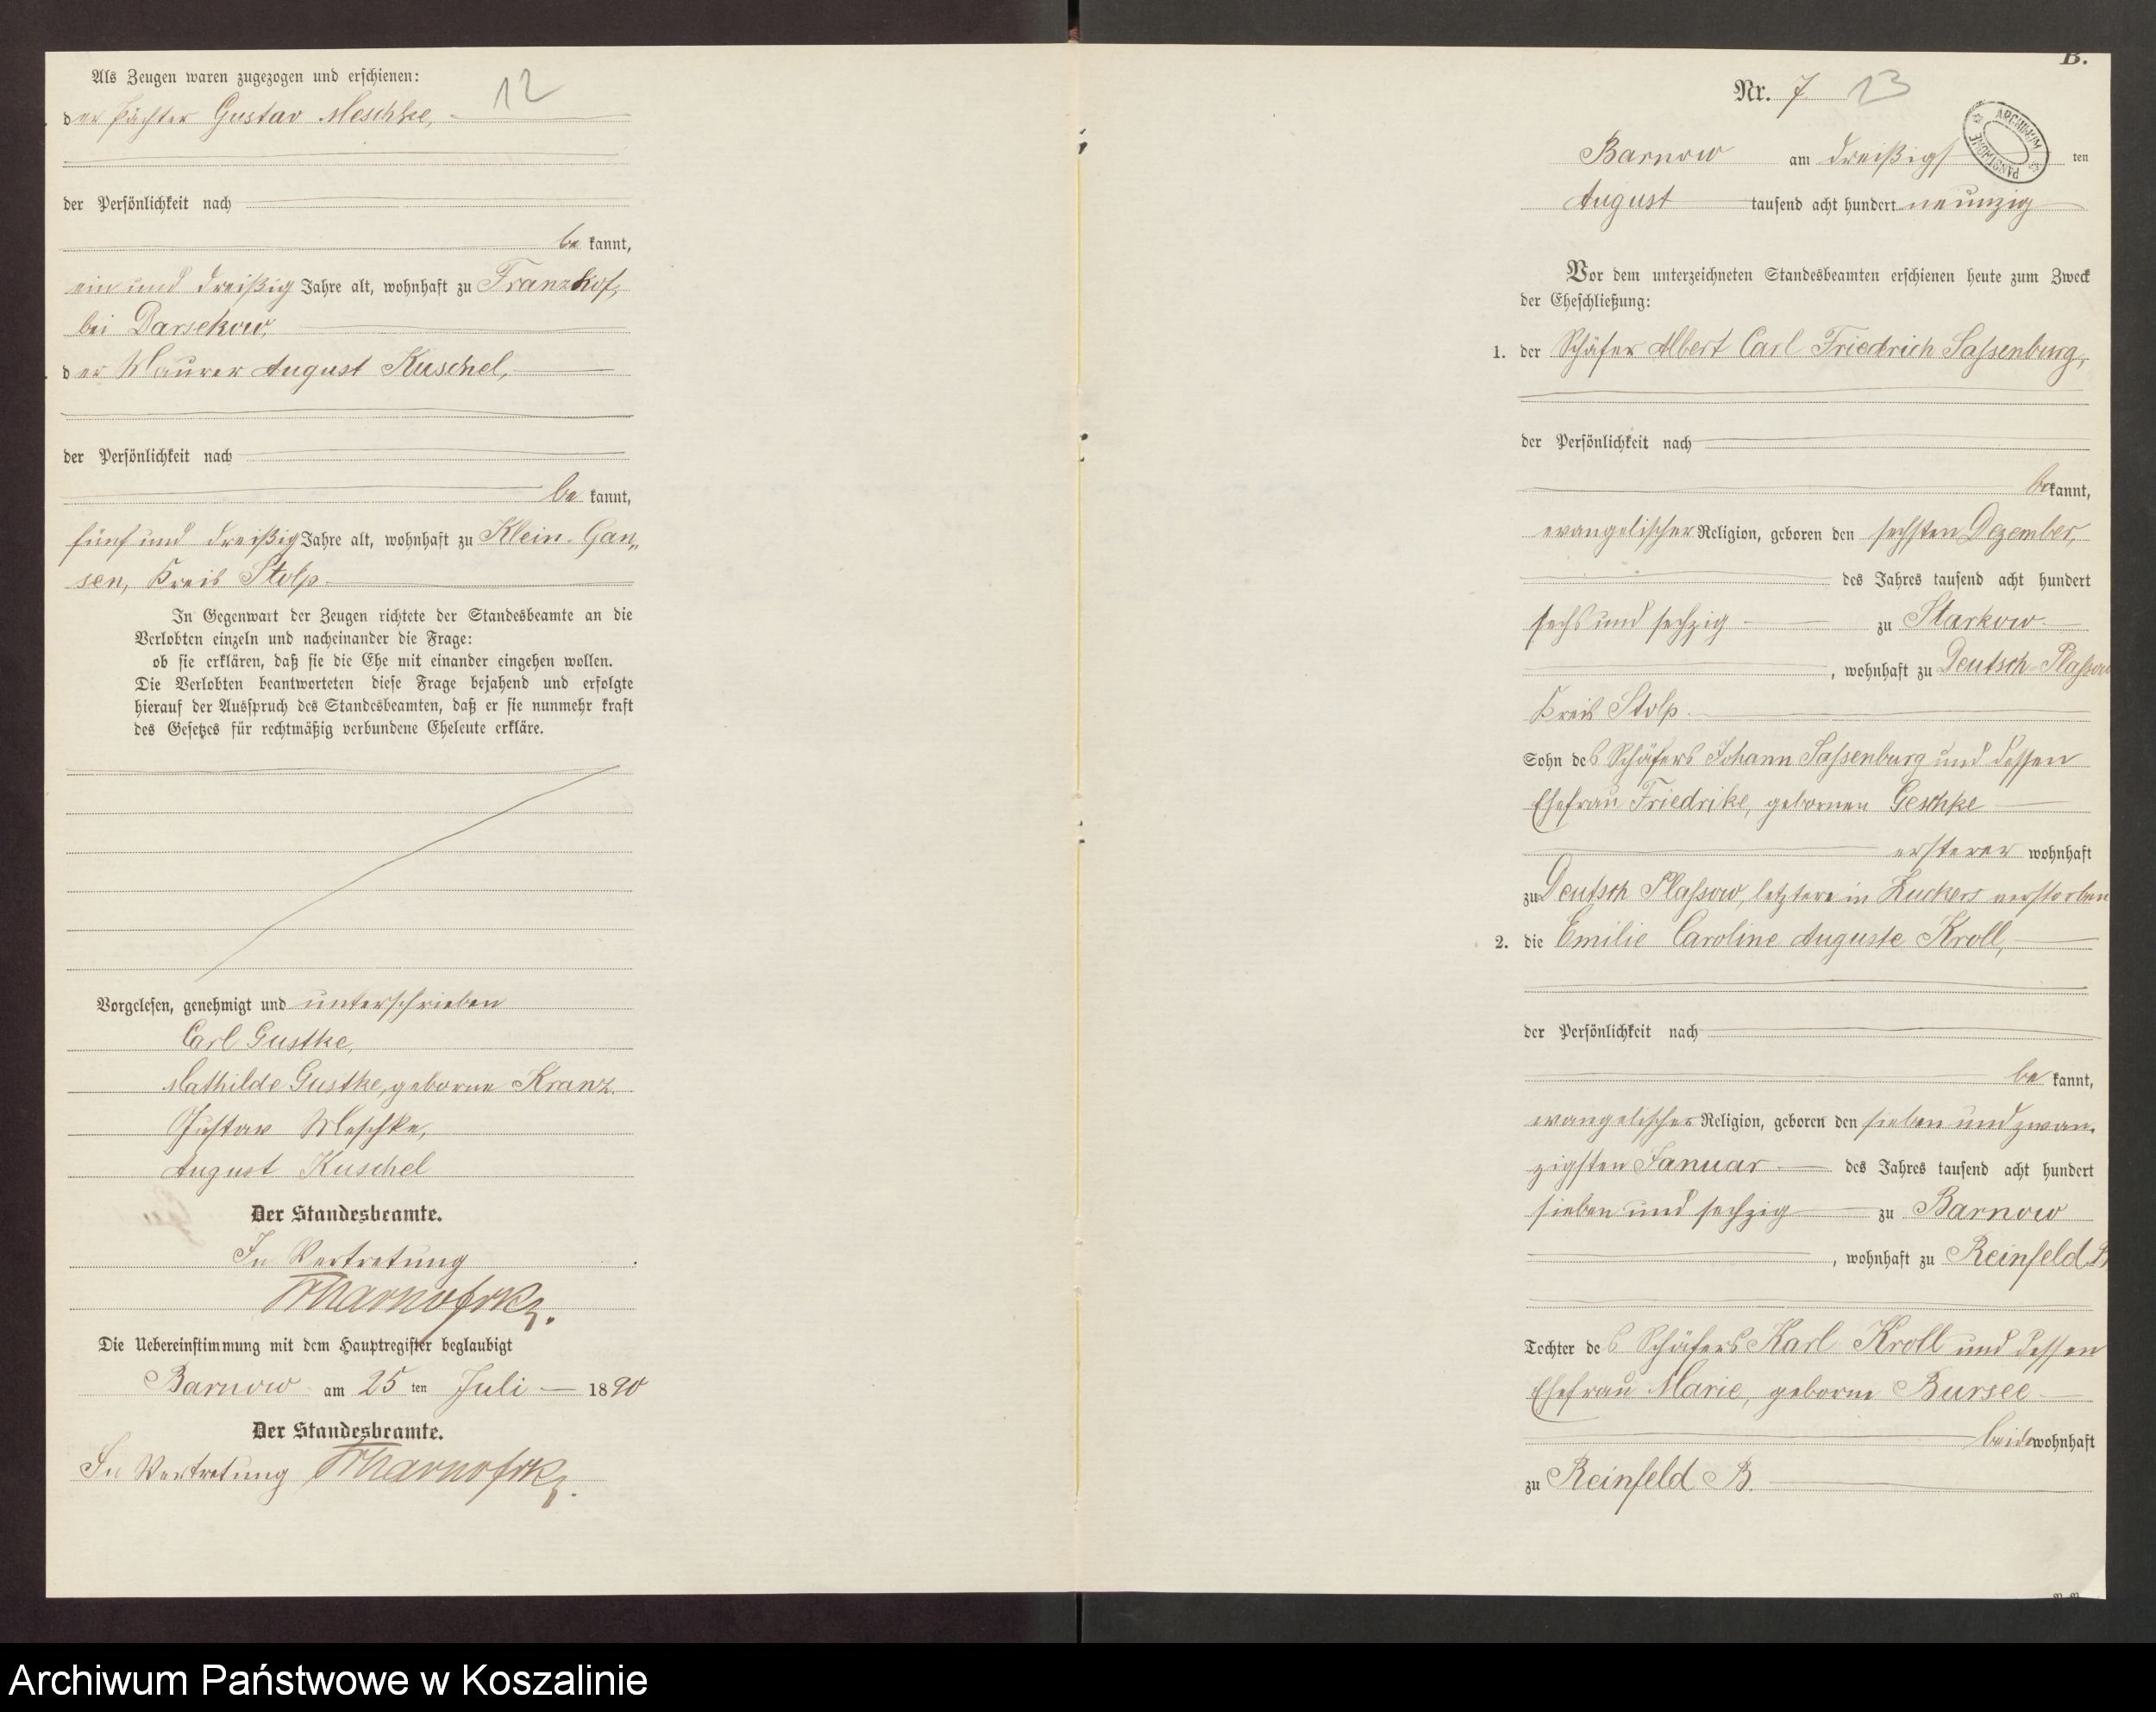 Als Zeugen waren zugezogen und erschienen:
12
der Pächter Gustav Meschke,
der Persönlichkeit nach
be kannt,
ein und dreißig Jahre alt, wohnhaft zu Franzhof,
bei Darsekow,
der Maurer August Kuschel,
der Persönlichkeit nach
be kannt,
fünf und dreißig Jahre alt, wohnhaft zu Klein-Gan„
sen, Kreis Stolp
In Gegenwart der Zeugen richtete der Standesbeamte an die
Verlobten einzeln und nacheinander die Frage:
ob sie erklären, daß sie die Ehe mit einander eingehen wollen.
Die Verlobten beantworteten diese Frage bejahend und erfolgte
hierauf der Ausspruch des Standesbeamten, daß er sie nunmehr kraft
des Gesetzes für rechtmäßig verbundene Eheleute erkläre.
Vorgelesen, genehmigt und unterschrieben
Carl Gustke,
Mathilde Gustke, geborne Kranz.
Gustav Meschke,
August Kuschel
Der Standesbeamte.
In Vertretung
Die Uebereinstimmung mit dem Hauptregister beglaubigt
Barnow am 25 ten Juli 1890
Der Standesbeamte.
In Vertretung
B.
Nr. 7 13
ARCHIWUM PAŃSTWOWE
Barnow am dreißigs ten
August tausend acht hundert neunzig
Vor dem unterzeichneten Standesbeamten erschienen heute zum Zweck
der Eheschließung:
1. der Schäfer Albert Carl Friedrich Sassenburg,
der Persönlichkeit nach
be kannt,
evangelischer Religion, geboren den sechsten Dezember,
des Jahres tausend acht hundert
sechs und sechzig zu Starkow
, wohnhaft zu Deutsch-Plassow
Kreis Stolp.
Sohn des Schäfers Johann Sassenburg und dessen
Ehefrau Friedrike, gebornen Geschke
ersterer wohnhaft
zu Deutsch Plassow, letztere in Zuckers verstorben
2. die Emilie Caroline Auguste Kroll,
der Persönlichkeit nach
be kannt,
evangelischer Religion, geboren den sieben und zwan-
zigsten Januar des Jahres tausend acht hundert
sieben und sechzig zu Barnow
, wohnhaft zu Reinfeld B
Tochter des Schäfers Karl Kroll und dessen
Ehefrau Marie, geborne Bursee
beide wohnhaft
zu Reinfeld B.
Archiwum Państwowe w Koszalinie